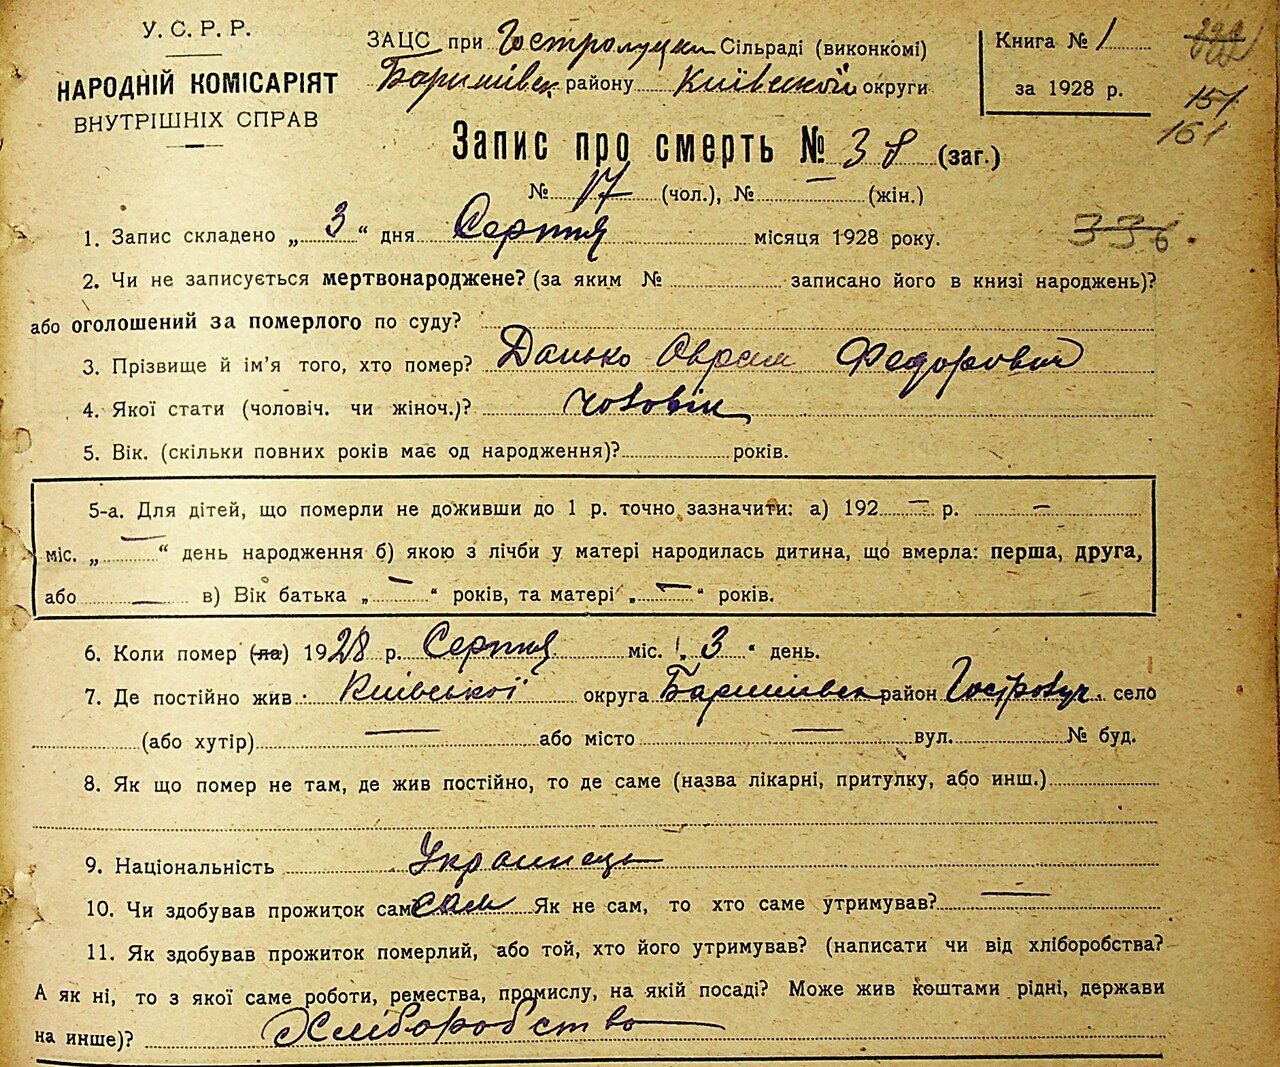 У. С. Р. Р.
НАРОДНІЙ КОМІСАРІЯТ
ВНУТРІШНІХ СПРАВ
ЗАЦС при Гостролуцки Сільраді (виконкомі)
Баришівськ району Київської округи
Книга № 1
за 1928 р.
151
161
Запис про смерть № 38 (заг.)
№ 17 (чол.), № — (жін.)
1. Запис складено „3“ дня Серпня місяця 1928 року.
336
2. Чи не записується мертвонароджене? (за яким № записано його в книзі народжень)?
або оголошений за померлого по суду?
3. Прізвище й ім'я того, хто помер? Данько Оврам Федорович
4. Якої стати (чоловіч. чи жіноч.)? чоловік
5. Вік. (скільки повних років має од народження)? років.
5-а. Для дітей, що померли не доживши до 1 р. точно зазначити: а) 192 — р. —
міс. „—“ день народження б) якою з лічби у матері народилась дитина, що вмерла: перша, друга,
або — в) Вік батька „—“ років, та матері „—“ років.
6. Коли помер (ла) 1928 р. Серпня міс. „3“ день.
7. Де постійно жив Київської округа Баришівськ район Гостролуч. село
(або хутір) — або місто — вул. № буд.
8. Як що помер не там, де жив постійно, то де саме (назва лікарні, притулку, або инш.)
9. Національність Украинець
10. Чи здобував прожиток сам сам Як не сам, то хто саме утримував? —
11. Як здобував прожиток померлий, або той, хто його утримував? (написати чи від хліборобства?
А як ні, то з якої саме роботи, ремества, промислу, на якій посаді? Може жив коштами рідні, держави
на инше)? Хліборобство